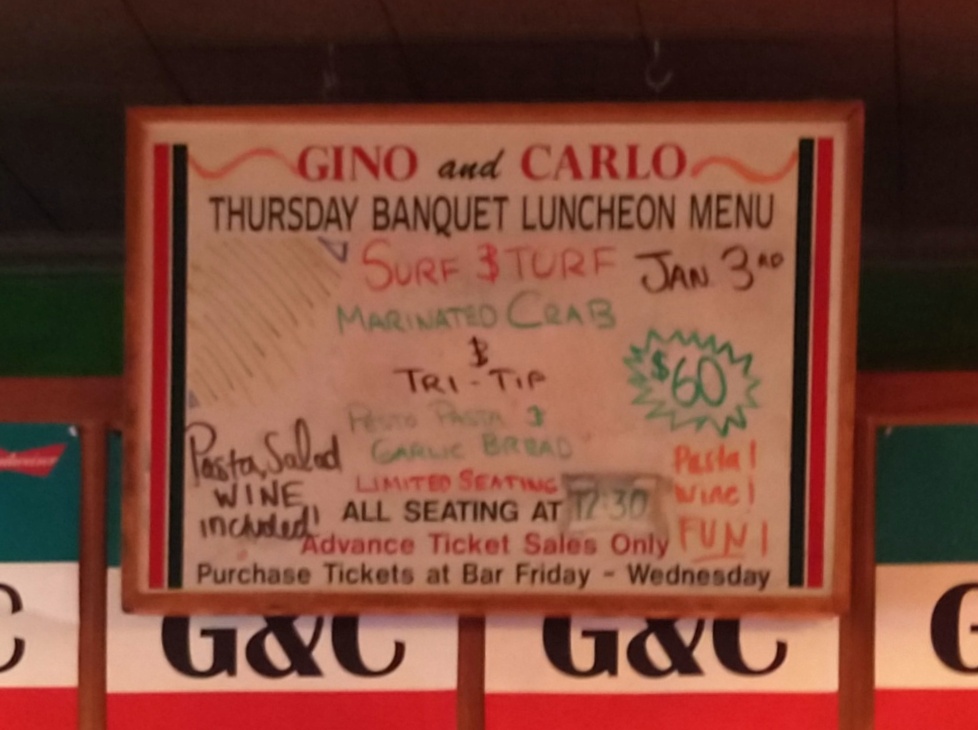 GINO and CARLO
THURSDAY BANQUET LUNCHEON MENU
SURF $ TURF JAN. 3RD
MARINATED CRAB
$
TRI-TIP
$60
PESTO PASTA $
GARLIC BREAD
Pasta, Salad
WINE
included!
LIMITED SEATING
ALL SEATING AT 12:30
Pasta!
Wine!
FUN!
Advance Ticket Sales Only
Purchase Tickets at Bar Friday - Wednesday
G&C
G&C